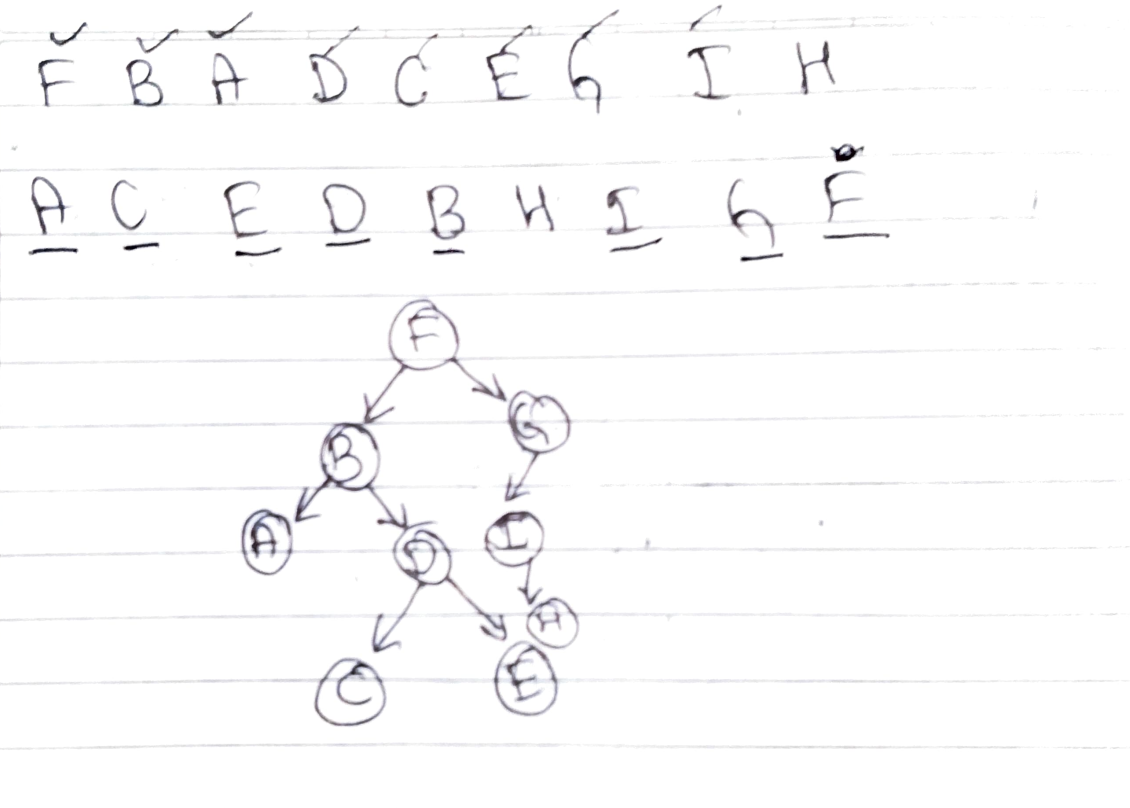 F B A D C E G I H
A C E D B H I G F
F
G
B
A D I
H
C E